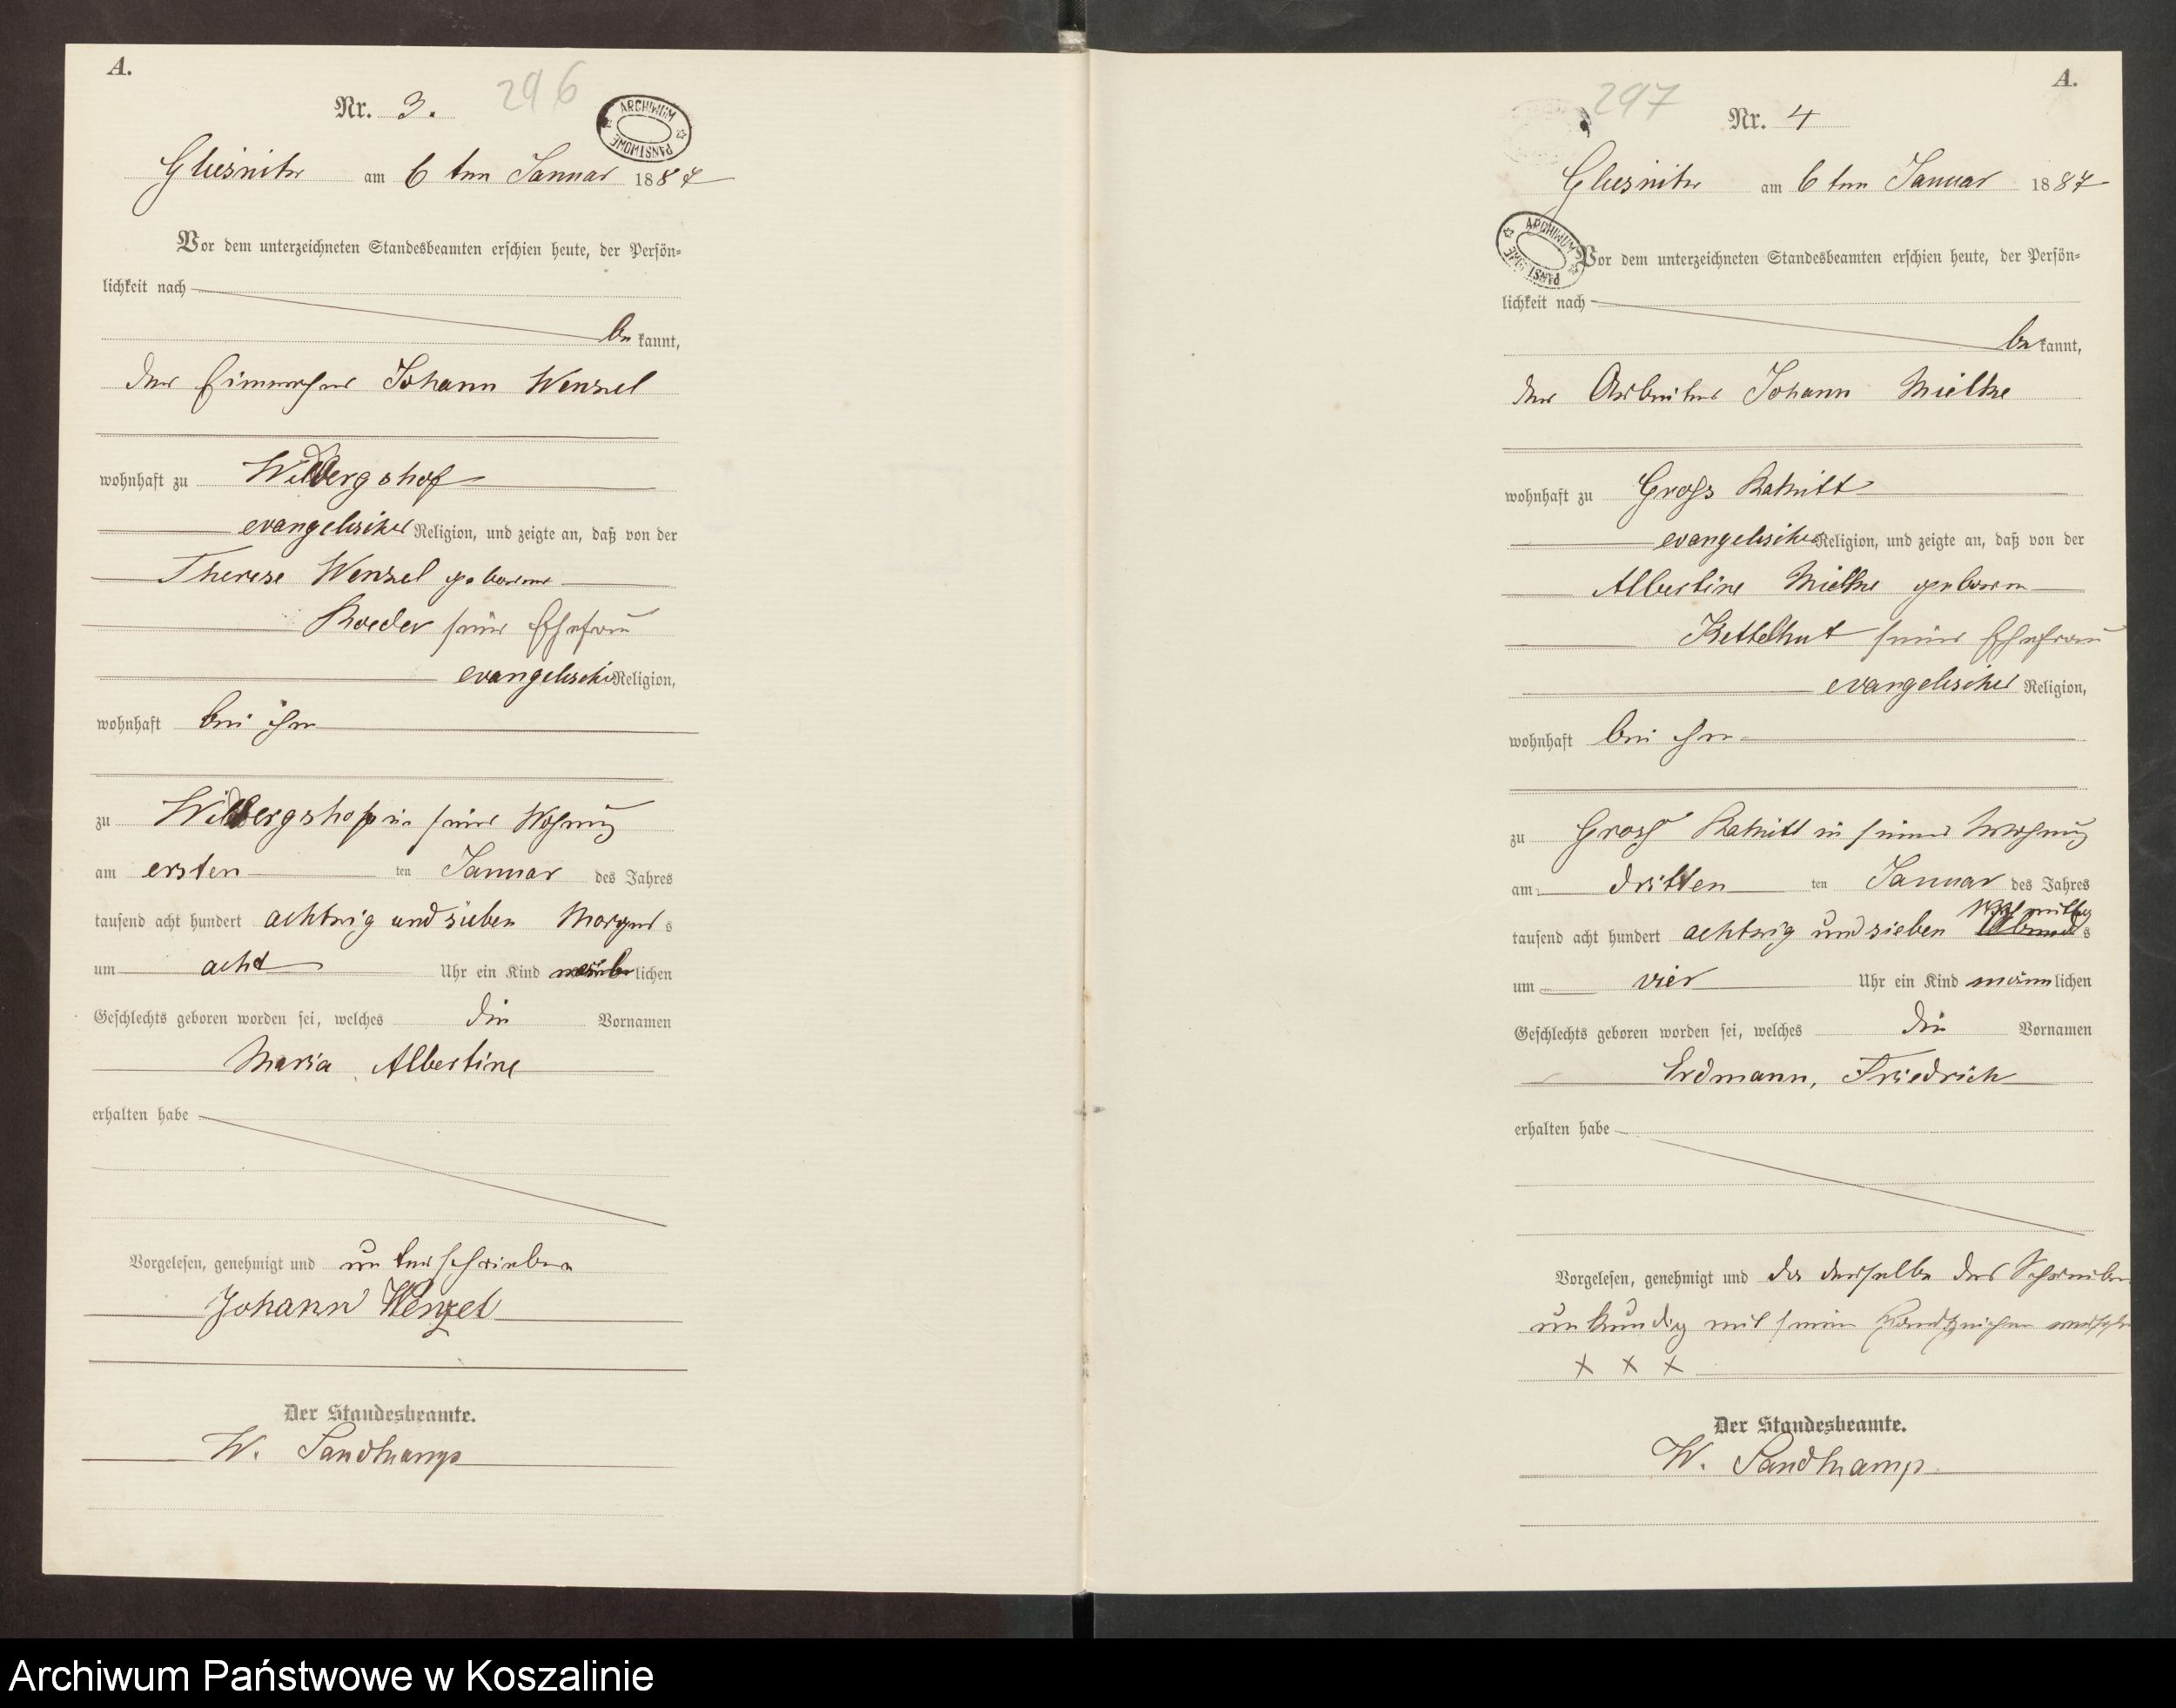 A.
Nr. 3.
296
ARCHIWUM PAŃSTWOWE
Gliesnitz am 6 ten Januar 1887
Vor dem unterzeichneten Standesbeamten erschien heute, der Persön-
lichkeit nach
be kannt,
der Einwohner Johann Wenzel
wohnhaft zu Wilbergshof
evangelischer Religion, und zeigte an, daß von der
Therese Wenzel geborene
Roeder seiner Ehefrau
evangelischer Religion,
wohnhaft bei ihm
zu Wilbergshof in seiner Wohnung
am ersten ten Januar des Jahres
tausend acht hundert achtzig und sieben Morgens
um acht Uhr ein Kind weiblichen
Geschlechts geboren worden sei, welches die Vornamen
Maria Albertine
erhalten habe
Vorgelesen, genehmigt und unterschrieben
Johann Wenzel
Der Standesbeamte.
W. Sandkamp
A.
297
Nr. 4
Gliesnitz am 6 ten Januar 1887
ARCHIWUM PAŃSTWOWE
Vor dem unterzeichneten Standesbeamten erschien heute, der Persön-
lichkeit nach
be kannt,
der Arbeiter Johann Mielke
wohnhaft zu Gross Rakitt
evangelischer Religion, und zeigte an, daß von der
Albertine Mielke geboren
Kettelhut seiner Ehefrau
evangelischer Religion,
wohnhaft bei ihm
zu Gross Rakitt in seiner Wohnung
am dritten ten Januar des Jahres
tausend acht hundert achtzig und sieben Nachmittags
um vier Uhr ein Kind männlichen
Geschlechts geboren worden sei, welches die Vornamen
Erdmann, Friedrich
erhalten habe
Vorgelesen, genehmigt und da derselbe des Schreibens
unkundig mit seinem Handzeichen versehen
x x x
Der Standesbeamte.
W. Sandkamp
Archiwum Państwowe w Koszalinie